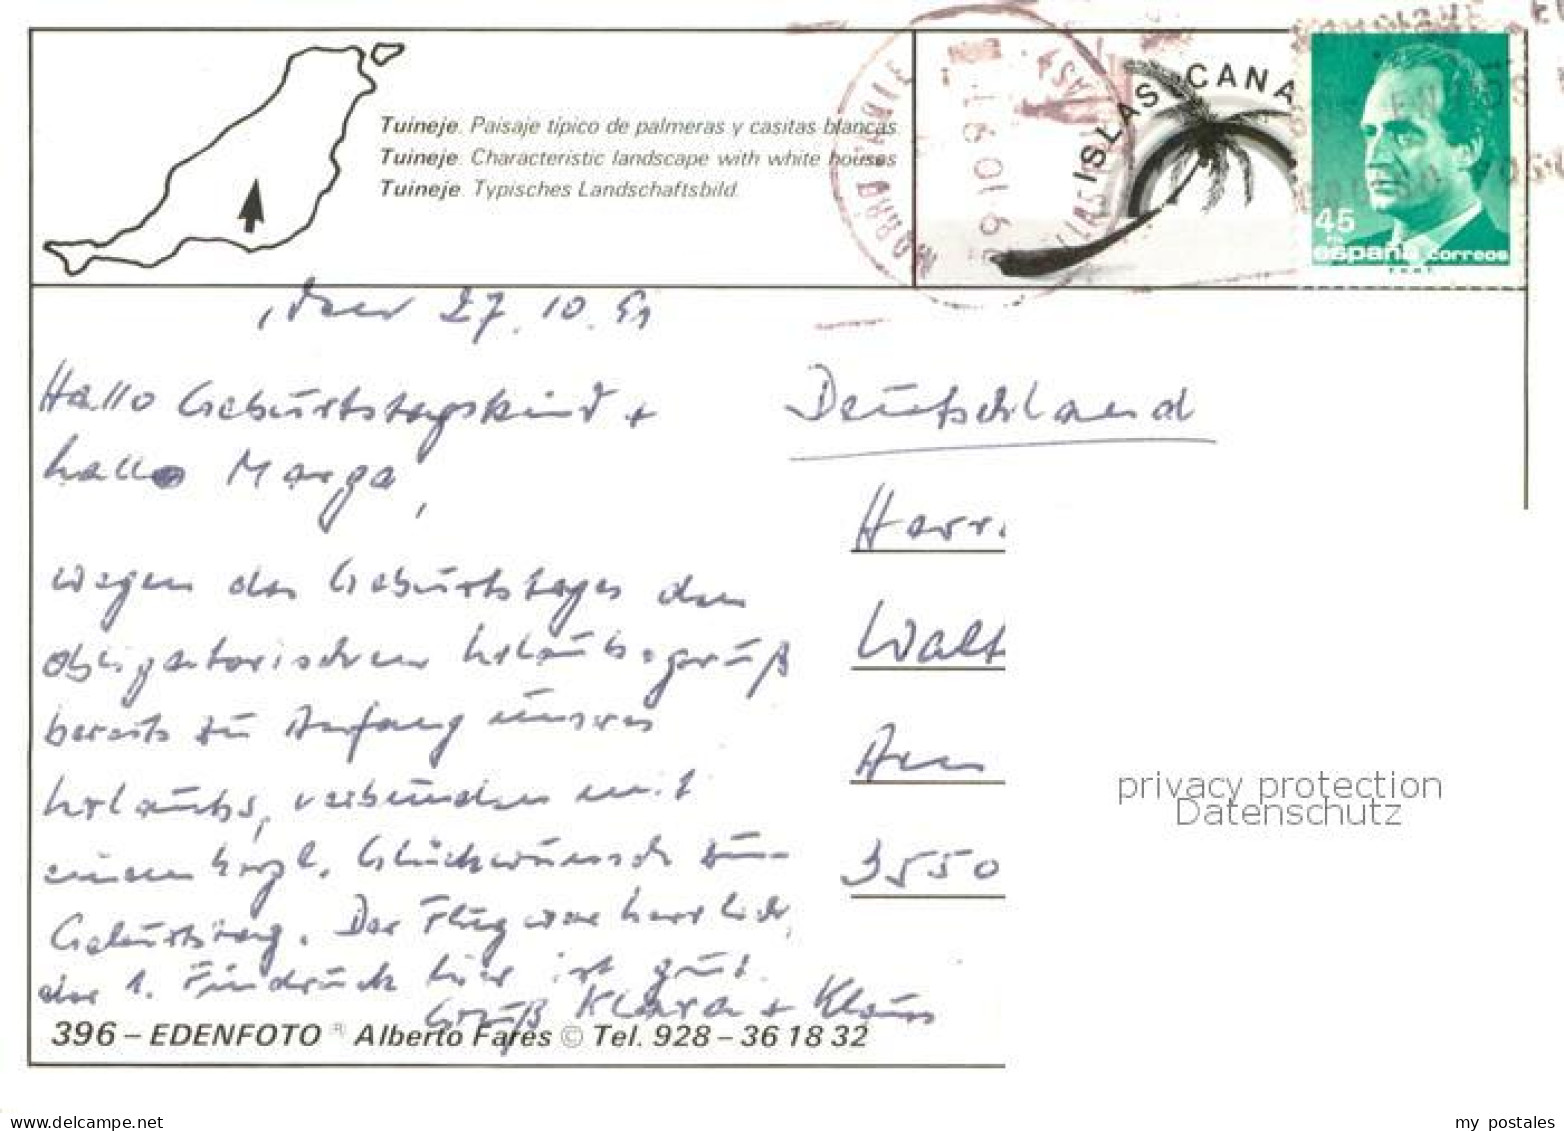 Tuineje. Paisaje típico de palmeras y casitas blancas.
Tuineje. Characteristic landscape with white houses
Tuineje. Typisches Landschaftsbild.
ISLAS CANA
45
PTA
españa correos
MORRO
, den 27.10.91
Hallo Geburtstagskind +
hallo Marga,
wegen des Geburtstages den
obligatorischen Urlaubsgruß
bereits zu Anfang unseres
Urlaubs, verbunden mit
einem herzl. Glückwunsch zum
Geburtstag. Der Flug war herrlich,
der 1. Eindruck hier ist gut.
Gruß Klara + Klaus
Deutschland
Herrn
Walt
3550
396 – EDENFOTO ® Alberto Fares © Tel. 928 – 36 18 32
privacy protection
Datenschutz
www.delcampe.net
my_postales